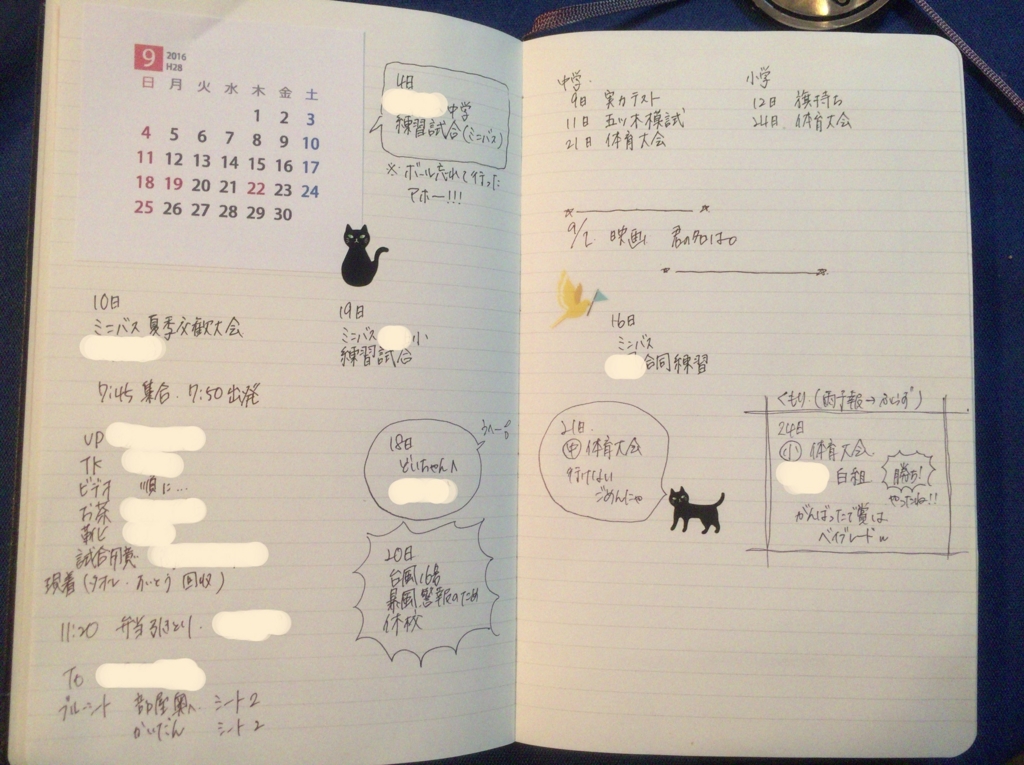 9 2016
H28
日 月 火 水 木 金 土
1 2 3
4 5 6 7 8 9 10
11 12 13 14 15 16 17
18 19 20 21 22 23 24
25 26 27 28 29 30
4日
中学
練習試合(ミニバス)
※ボール忘れて行った
アホー!!!
10日
ミニバス 夏季交歓大会
7:45 集合 7:50 出発
UP
TK
ビデオ 順に...
お茶
靴ヒ
試合用糞
現着(タオル 回収)
11:20 弁当引きとり
To
部屋奥へ シート2
かいだん シート2
19日
ミニバス 小
練習試合
18日
20日
台風16号
暴風警報のため
休校
中学
9日 実力テスト
11日 五ッ木模試
21日 体育大会
小学
12日 旗持ち
24日 体育大会
映画 君の名は。
16日
ミニバス
合同練習
21日
中 体育大会
行けない
ごめんにゃ
くもり (雨予報→ふらず)
24日
小 体育大会
白組 勝ち!
やったね!!
がんばったで賞は
ベイブレードw